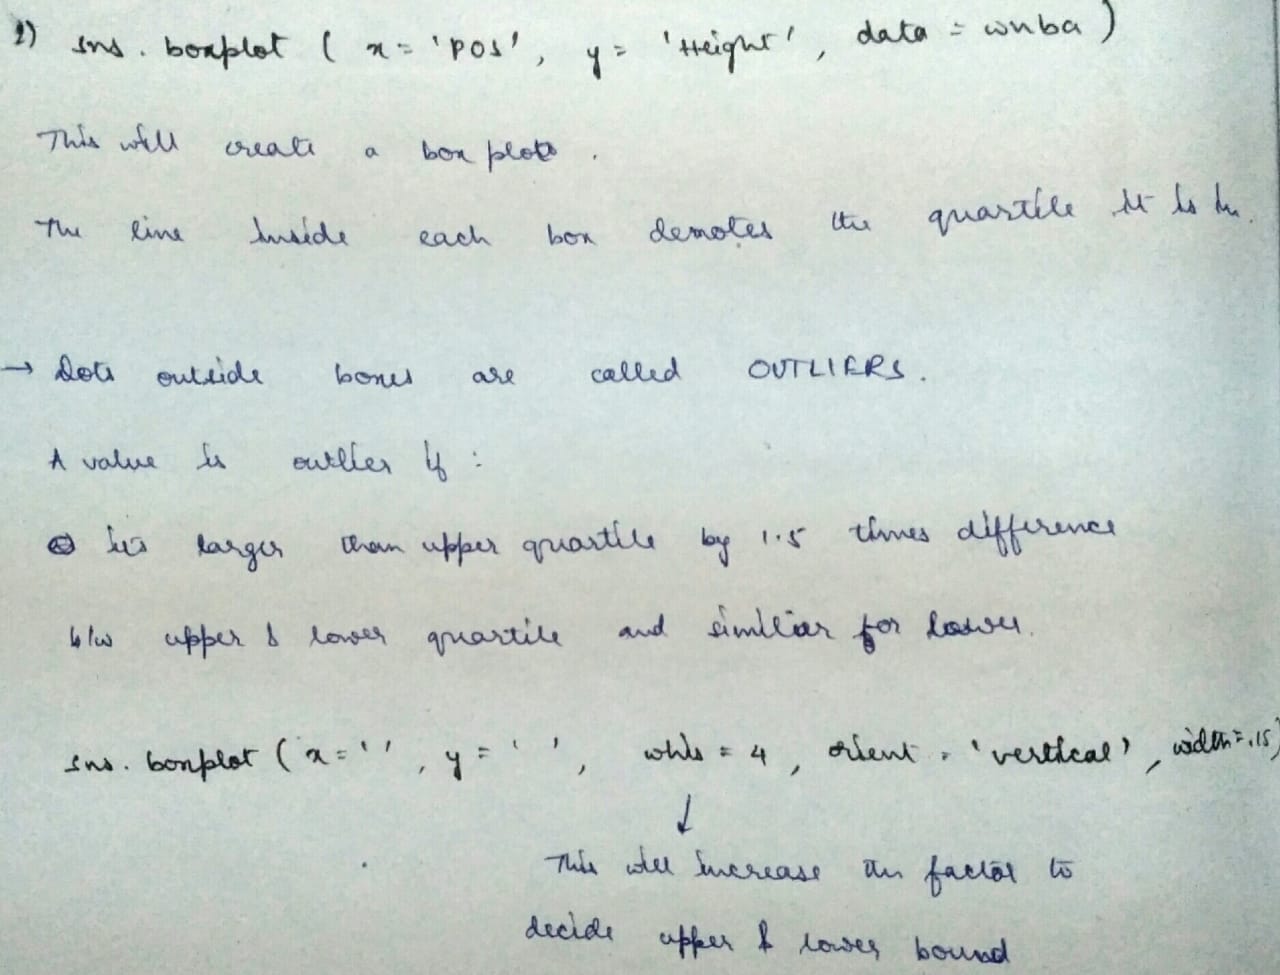 2) sns. boxplot ( x = 'POS', y = 'Height', data = wnba )
This will create a box plot .
The line inside each box denotes the quartile it is in.
→ Dots outside boxes are called OUTLIERS.
A value is outlier if :
its larger than upper quartile by 1.5 times difference
b/w upper & lower quartile and similiar for lower.
sns. boxplot ( x = ' ' , y = ' ' , whis = 4 , orient = 'vertical' , width = .15)
↓
This will increase the factor to
decide upper & lower bound